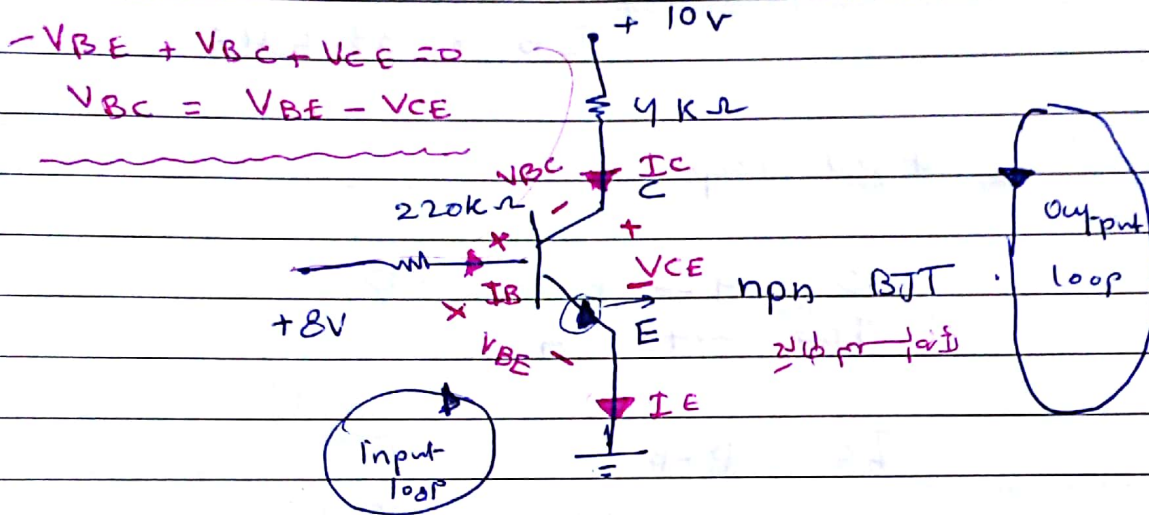 -VBE + VBC + VCE = 0
VBC = VBE - VCE
+ 10V
4 KΩ
VBC
IC
C
220K Ω
-
+
x
VCE
-
IB
x
+8V
E
VBE
-
npn BJT .
IE
Input
loop
Output
loop